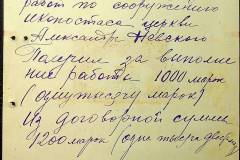 работ по сооружению
иконостаса церкви
Александр Невского
Получил за выполне
ние работы 1000 марок
(одну тысячу марок)
Из договорной суммы
1200 марок (одне тысяча двести